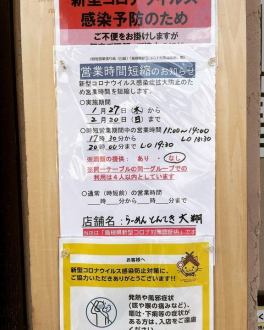 新型コロナウイルス
感染予防のため
ご不便をお掛けしますが
営業時間短縮のお知らせ
新型コロナウイルス感染症拡大防止のた
め営業時間を短縮します。
○実施期間
1月27日(木)から
2月20日(日)まで
○時短営業期間中の営業時間 11:00~14:00
LO 13:30
17時30分から
20時00分まで LO 19:30
※酒類の提供: あり・なし
※同一テーブルの同一グループでの
利用は4人以内としています
○通常(時短前)の営業時間
時 分から 時 分まで
店舗名:らーめんとんてき 大翔
お客様へ
新型コロナウイルス感染防止対策に、
ご協力いただきありがとうございます!!
発熱や風邪症状
(咳や喉の痛みなど)、
嘔吐・下痢等の症状が
ある方は、入店をご遠慮